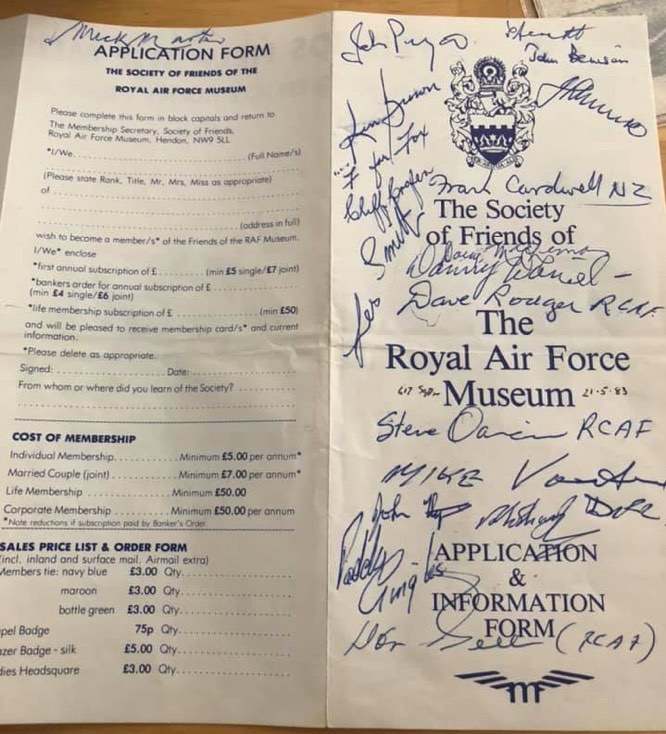 Mick Martin
APPLICATION FORM
THE SOCIETY OF FRIENDS OF THE
ROYAL AIR FORCE MUSEUM
Please complete this form in block capitals and return to
The Membership Secretary, Society of Friends,
Royal Air Force Museum, Hendon, NW9 5LL
*I/We (Full Name/s)
(Please state Rank, Title, Mr, Mrs, Miss as appropriate)
of
(address in full)
wish to become a member/s* of the Friends of the RAF Museum.
I/We* enclose
*first annual subscription of £ (min £5 single/£7 joint)
*bankers order for annual subscription of £
(min £4 single/£6 joint)
*life membership subscription of £ (min £50)
and will be pleased to receive membership card/s* and current
information.
*Please delete as appropriate.
Signed: Date:
From whom or where did you learn of the Society?
COST OF MEMBERSHIP
Individual Membership Minimum £5.00 per annum*
Married Couple (joint) Minimum £7.00 per annum*
Life Membership Minimum £50.00
Corporate Membership Minimum £50.00 per annum
*Note reductions if subscription paid by Banker's Order
SALES PRICE LIST & ORDER FORM
(incl. inland and surface mail. Airmail extra)
Members tie: navy blue £3.00 Qty
maroon £3.00 Qty
bottle green £3.00 Qty
pel Badge 75p Qty
zer Badge - silk £5.00 Qty
dies Headsquare £3.00 Qty
John Pryor
John Benison
Ken Brown
F for Fox
Frank Cardwell NZ
The Society
of Friends of
Danny
Dave Rodger RCAF
Les
The
Royal Air Force
Museum
617 Sqn 21-5-83
Steve RCAF
MIKE
John
APPLICATION
&
INFORMATION
FORM
Paddy
Don (RCAF)